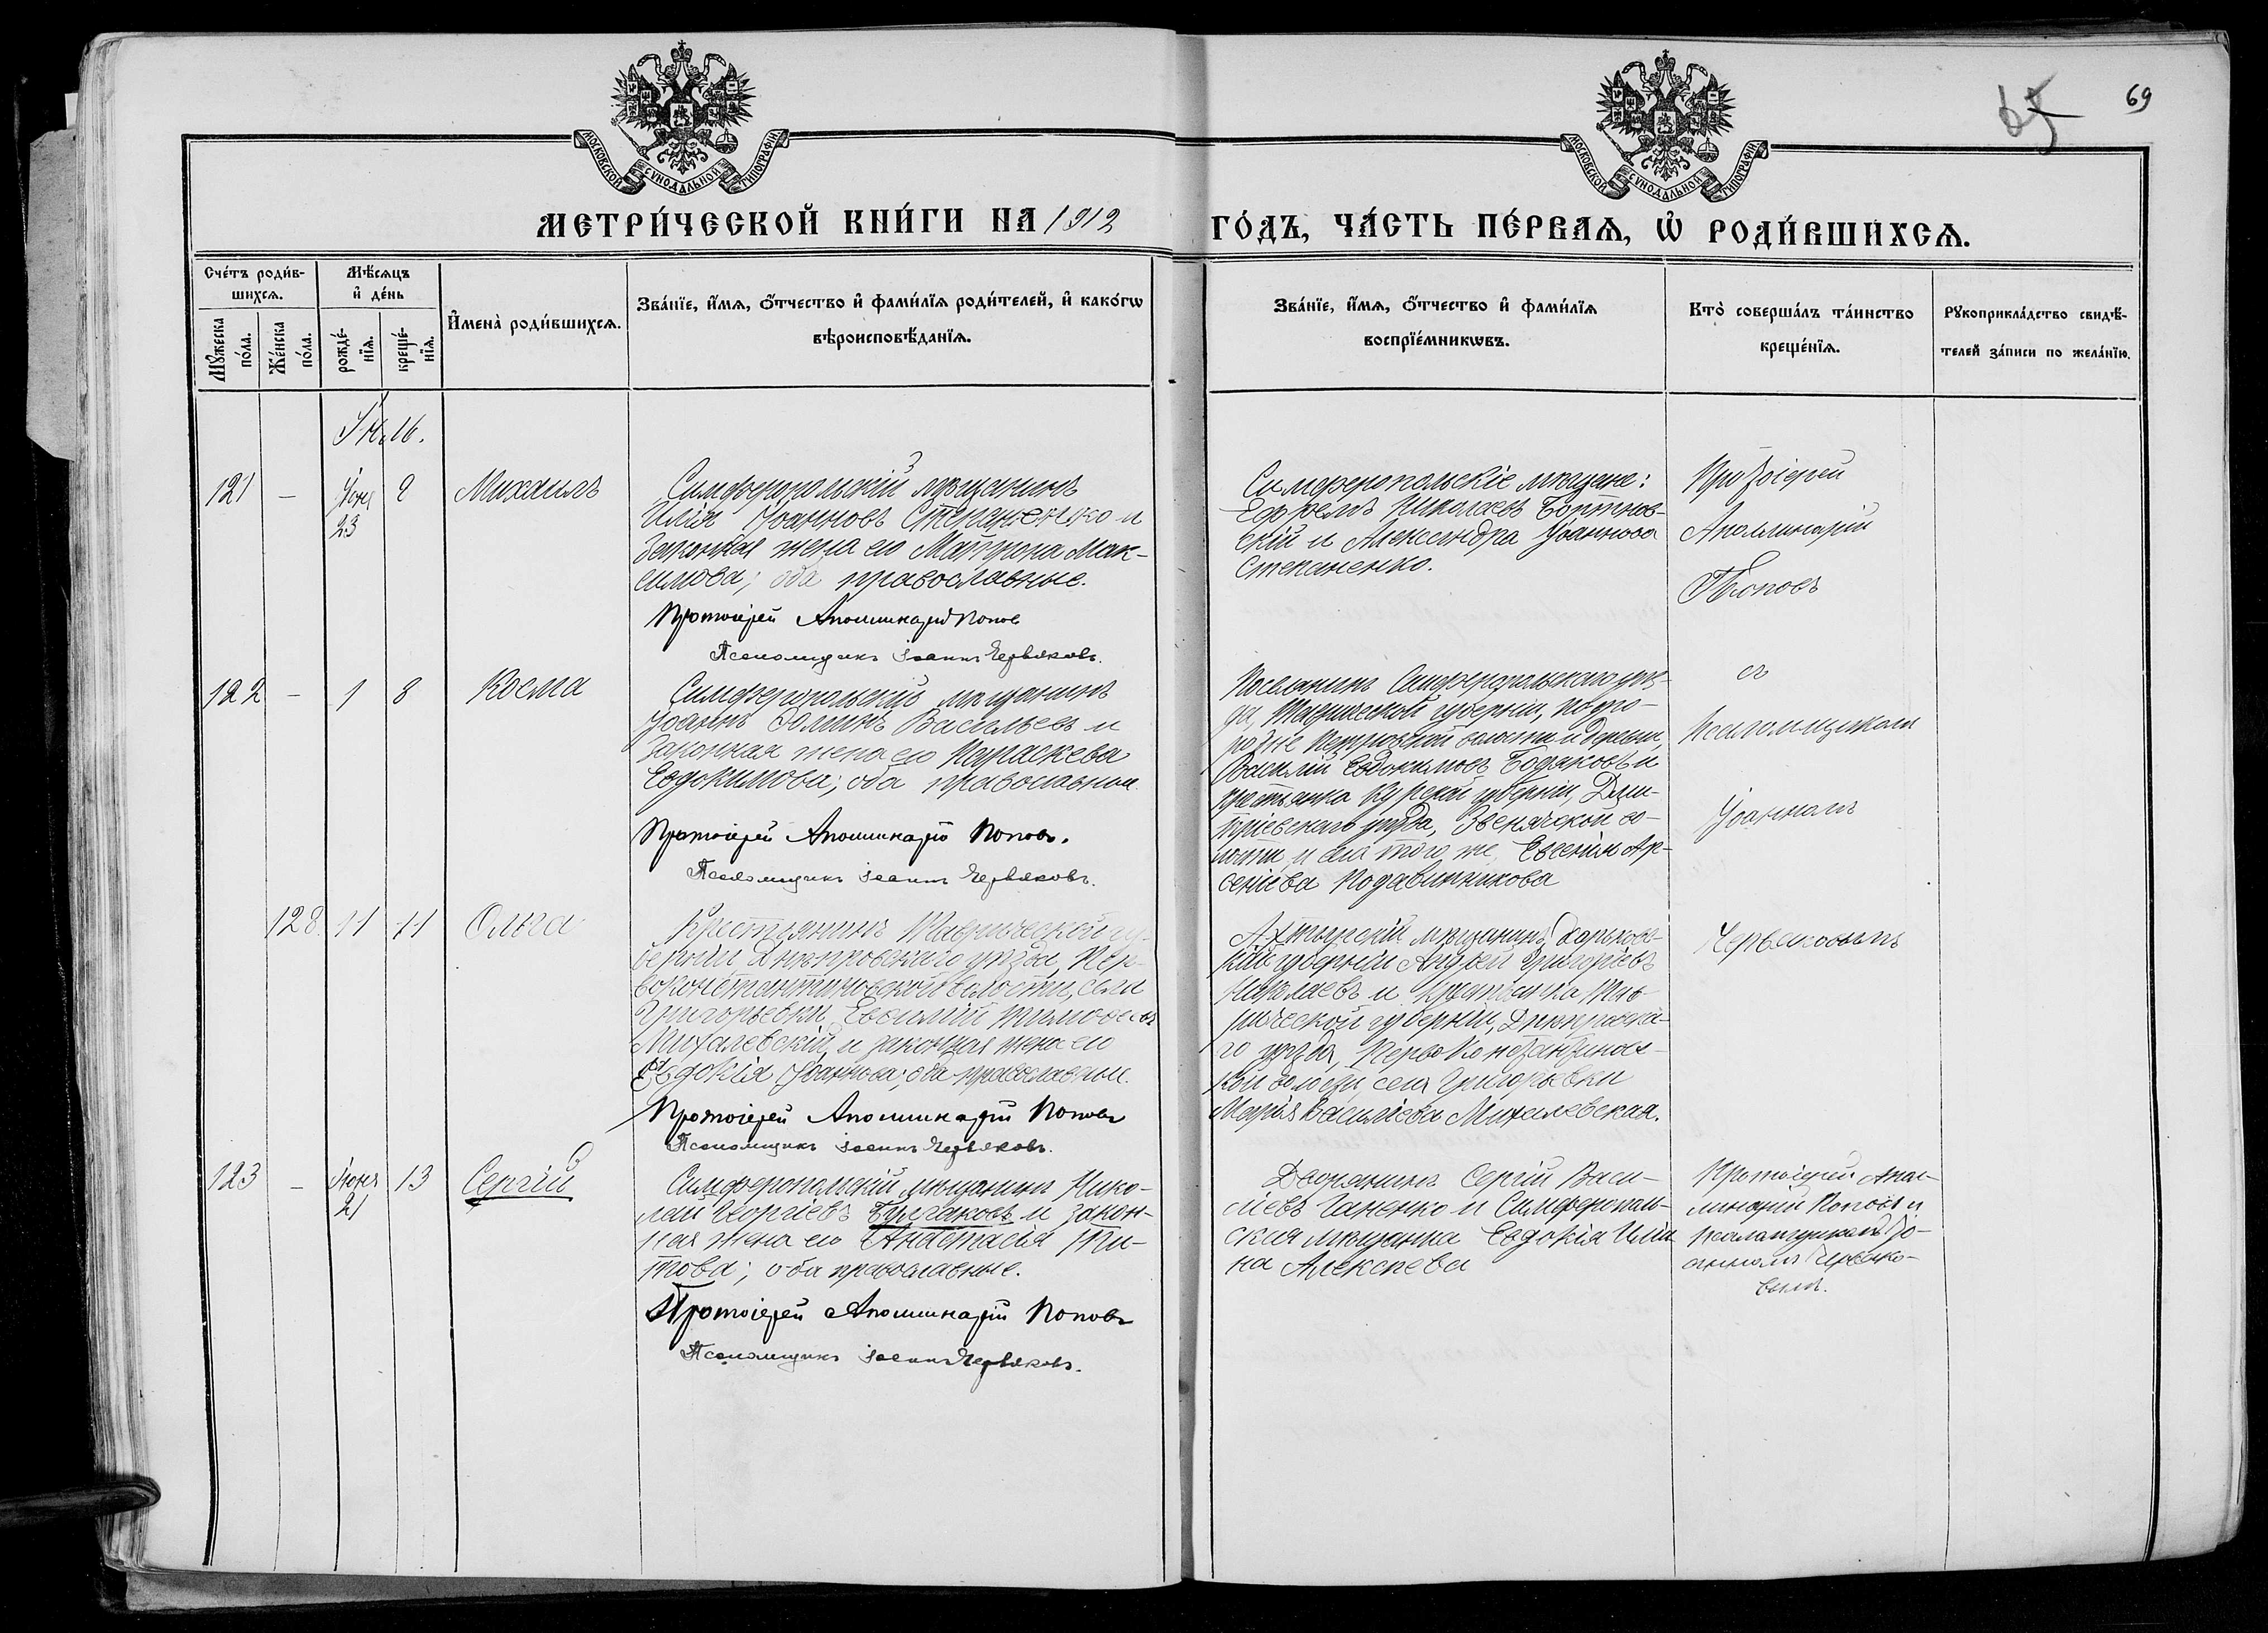 65
69
МОСКОВСКОЙ СѴНОДАЛЬНОЙ ТИПОГРАФІИ
МОСКОВСКОЙ СѴНОДАЛЬНОЙ ТИПОГРАФІИ
МЕТРИ́ЧЕСКОЙ КНИ́ГИ НА 1912 ГО́ДЪ, ЧА́СТЬ ПЕ́РВАѦ, Ѡ҆ РОДИ́ВШИХСѦ.
Сче́тъ роди́в-
шихсѧ.
Мꙋ́жеска
по́ла.
Же́нска
по́ла.
Мѣ́сѧцъ
и҆ де́нь
рожде́-
нїѧ.
креще́-
нїѧ.
И҆мена̀ роди́вшихсѧ.
Зва́нїе, и҆́мѧ, ѻ҆́тчество и҆ фами́лїѧ роди́телей, и҆ како́гѡ
вѣроисповѣ́данїѧ.
Зва́нїе, и҆́мѧ, ѻ҆́тчество и҆ фами́лїѧ
воспрїе́мникѡвъ.
Кто̀ соверша́лъ та́инство
креще́нїѧ.
Рꙋкоприкла́дство свидѣ́-
телей за́писи по жела́нїю.
121
–
Іюня
23
Михаилъ
Симферопольскій мѣщанинъ
Илія Іоанновъ Степаненко и
законная жена его Матрона Мак-
симова; оба православные.
Протоіерей Аполлинарій Попов
Псаломщикъ Іоаннъ Червяковъ.
Симферопольскіе мѣщане:
Николаевъ
и Александра Іоаннова
Степаненко.
Протоіерей
Аполлинарій
Поповъ
122
–
1
8
Косма
Симферопольскій мѣщанинъ
Іоаннъ Васильевъ и
законная жена его Параскева
Евдокимова; оба православные.
Протоіерей Аполлинарій Поповъ.
Псаломщикъ Іоаннъ Червяковъ.
Поселянинъ Симферопольскаго уѣз-
да, Таврической губерніи,
волости и деревни,
Василій Евдокимовъ и
крестьянка Курской губерніи, Дми-
тріевскаго уѣзда, во-
лости и села того же, Евгенія Ар-
сеніева
съ
Псаломщикомъ
Іоанномъ
128
11
11
Ольга
Крестьянинъ Таврической гу-
берніи Днѣпровскаго уѣзда, Пер-
воконстантиновской волости, села
Григорьевки,
Михалевскій и законная жена его
Евдокія Іоаннова; оба православные.
Протоіерей Аполлинарій Поповъ
Псаломщикъ Іоаннъ Червяковъ.
Ахтырскій мѣщанинъ, Харьков-
ской губерніи Андрей Григоріевъ
Николаевъ и крестьянка Тав-
рической губерніи, Днѣпровска-
го уѣзда, Первоконстантинов-
ской волости, села Григорьевки
Марія Васильева Михалевская.
Червяковымъ
123
–
Іюня
21
13
Сергій
Симферопольскій мѣщанинъ Нико-
лай Георгіевъ Булгаковъ и закон-
ная жена его Анастасія Ти-
това; оба православные.
Протоіерей Аполлинарій Поповъ
Псаломщикъ Іоаннъ Червяковъ.
Дворянинъ Сергій Васи-
ліевъ Ганенко и Симферополь-
ская мѣщанка Евдокія Ильи-
на Алексѣева
Протоіерей Апол-
линарій Поповъ и
псаломщикомъ Іо-
анномъ Червяко-
вымъ.